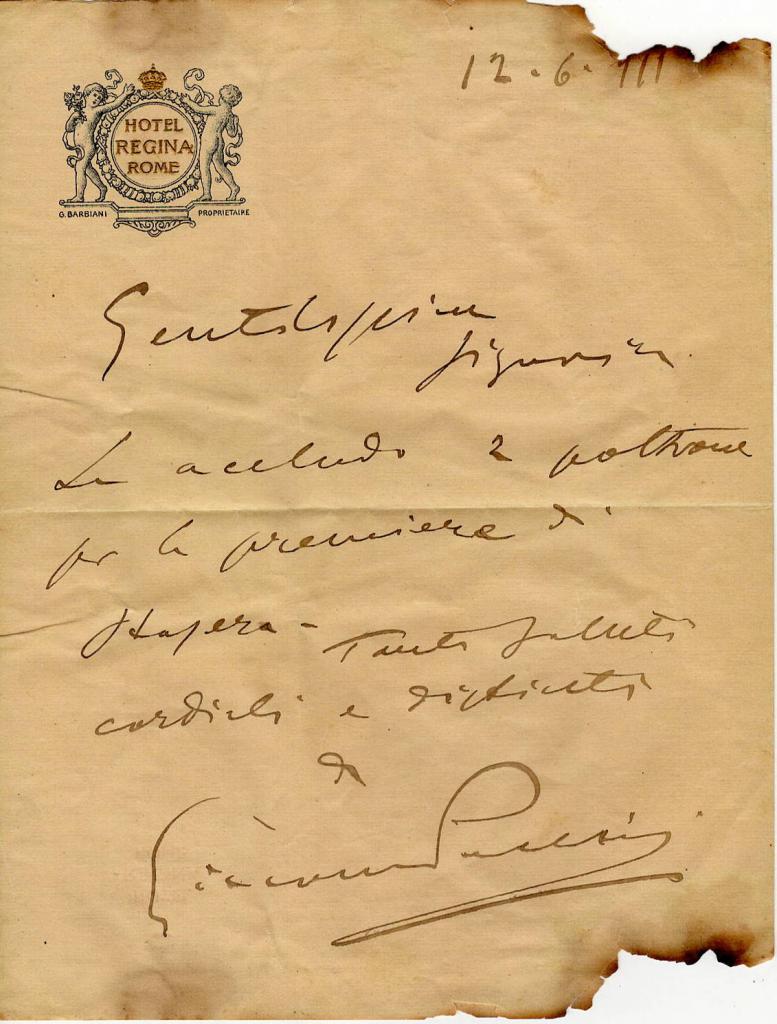 12.6.'11
HOTEL
REGINA
ROME
G. BARBIANI PROPRIETAIRE
Gentilissima
Signorina
Le accludo 2 poltrone
per la première di
stasera - Tanti saluti
cordiali e distinti
di
Giacomo Puccini